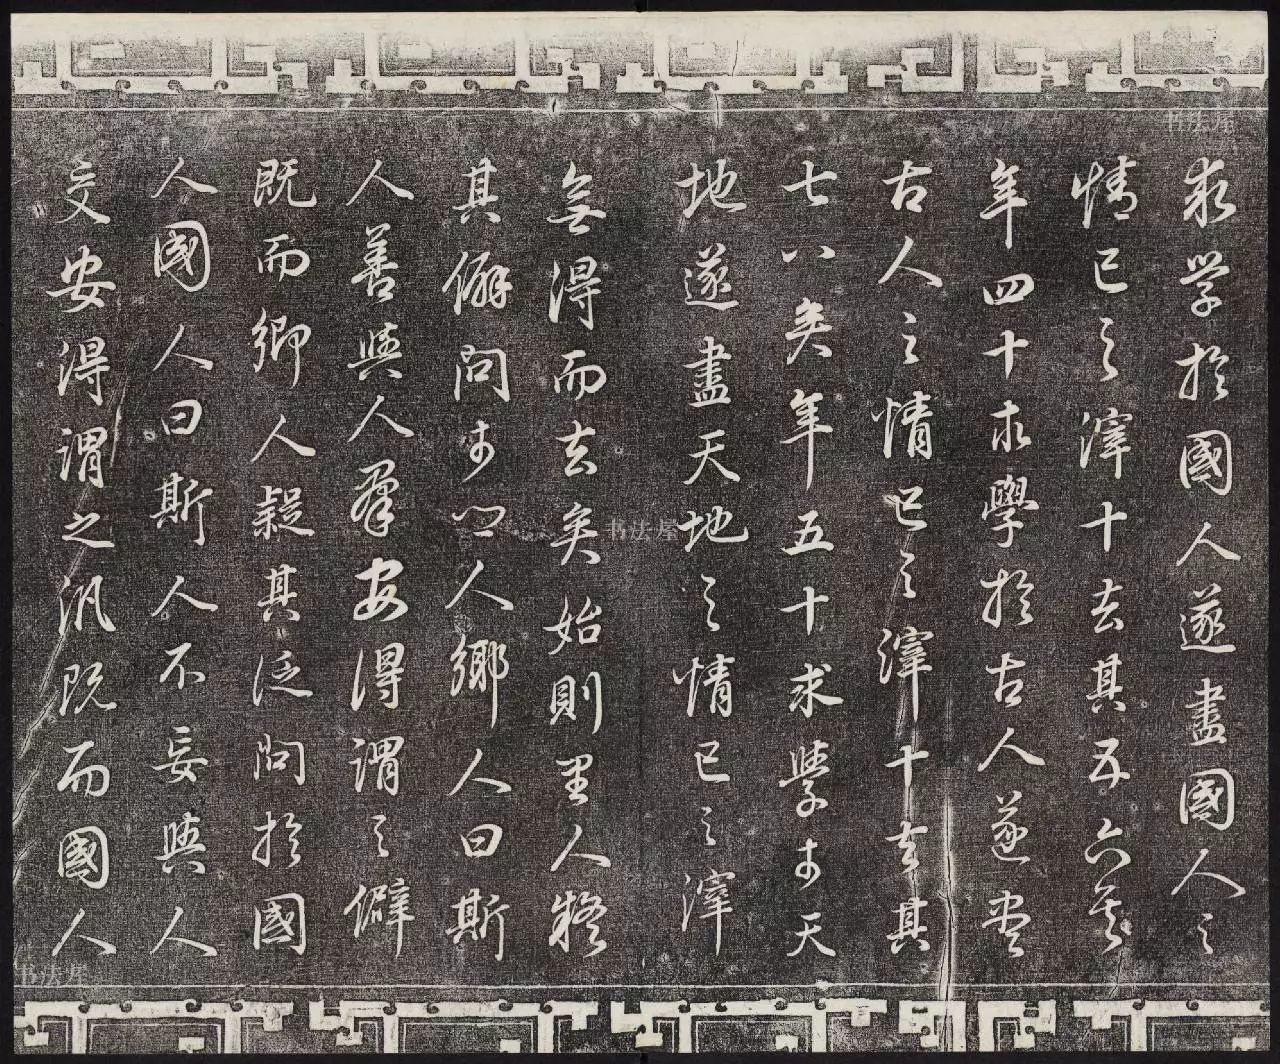 求學於國人遂盡國人之
情已之滓十去其五六矣
年四十求學於古人遂盡
古人之情已之滓十去其
七八矣年五十求學于天
地遂盡天地之情已之滓
無得而去矣始則里人疑
其僻問于鄉人鄉人曰斯
人善與人羣安得謂之僻
既而鄉人疑其泛問於國
人國人曰斯人不妄與人
交安得謂之汎既而國人
书法屋
书法屋
书法屋